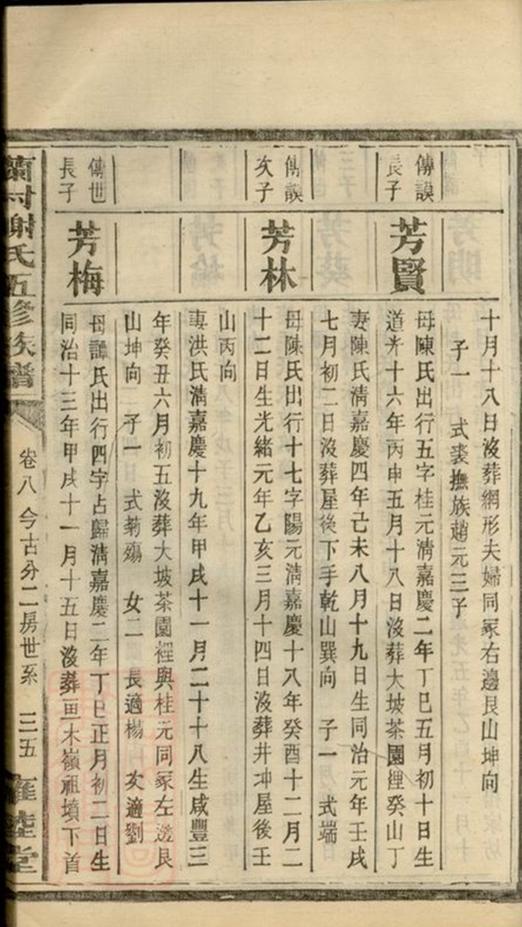 十月十八日沒葬網形夫婦同冢右邊艮山坤向
子一 式裘撫族趙元三子
傳謨
長子
芳賢
母陳氏出行五字桂元淸嘉慶二年丁巳五月初十日生
道光十六年丙申五月十八日沒葬大坡茶園裡癸山丁
妻陳氏淸嘉慶四年己未八月十九日生同治元年壬戌
七月初二日沒葬屋後下手乾山巽向 子一 式端
傳謨
次子
芳林
母陳氏出行十七字陽元淸嘉慶十八年癸酉十二月二
十二日生光緖元年乙亥三月十四日沒葬井坤屋後壬
山丙向
妻洪氏淸嘉慶十九年甲戌十一月二十十八生咸豐三
年癸丑六月初五沒葬大坡茶園裡與桂元同冢左邊艮
山坤向 子一 式菊殤 女二 長適楊 次適劉
傳世
長子
芳梅
母譚氏出行四字占歸淸嘉慶二年丁巳正月初二日生
同治十三年甲戌十一月十五日沒葬畫木嶺祖墳下首
蘭村謝氏五修族譜
卷八 今古分二房世系 三五 堂